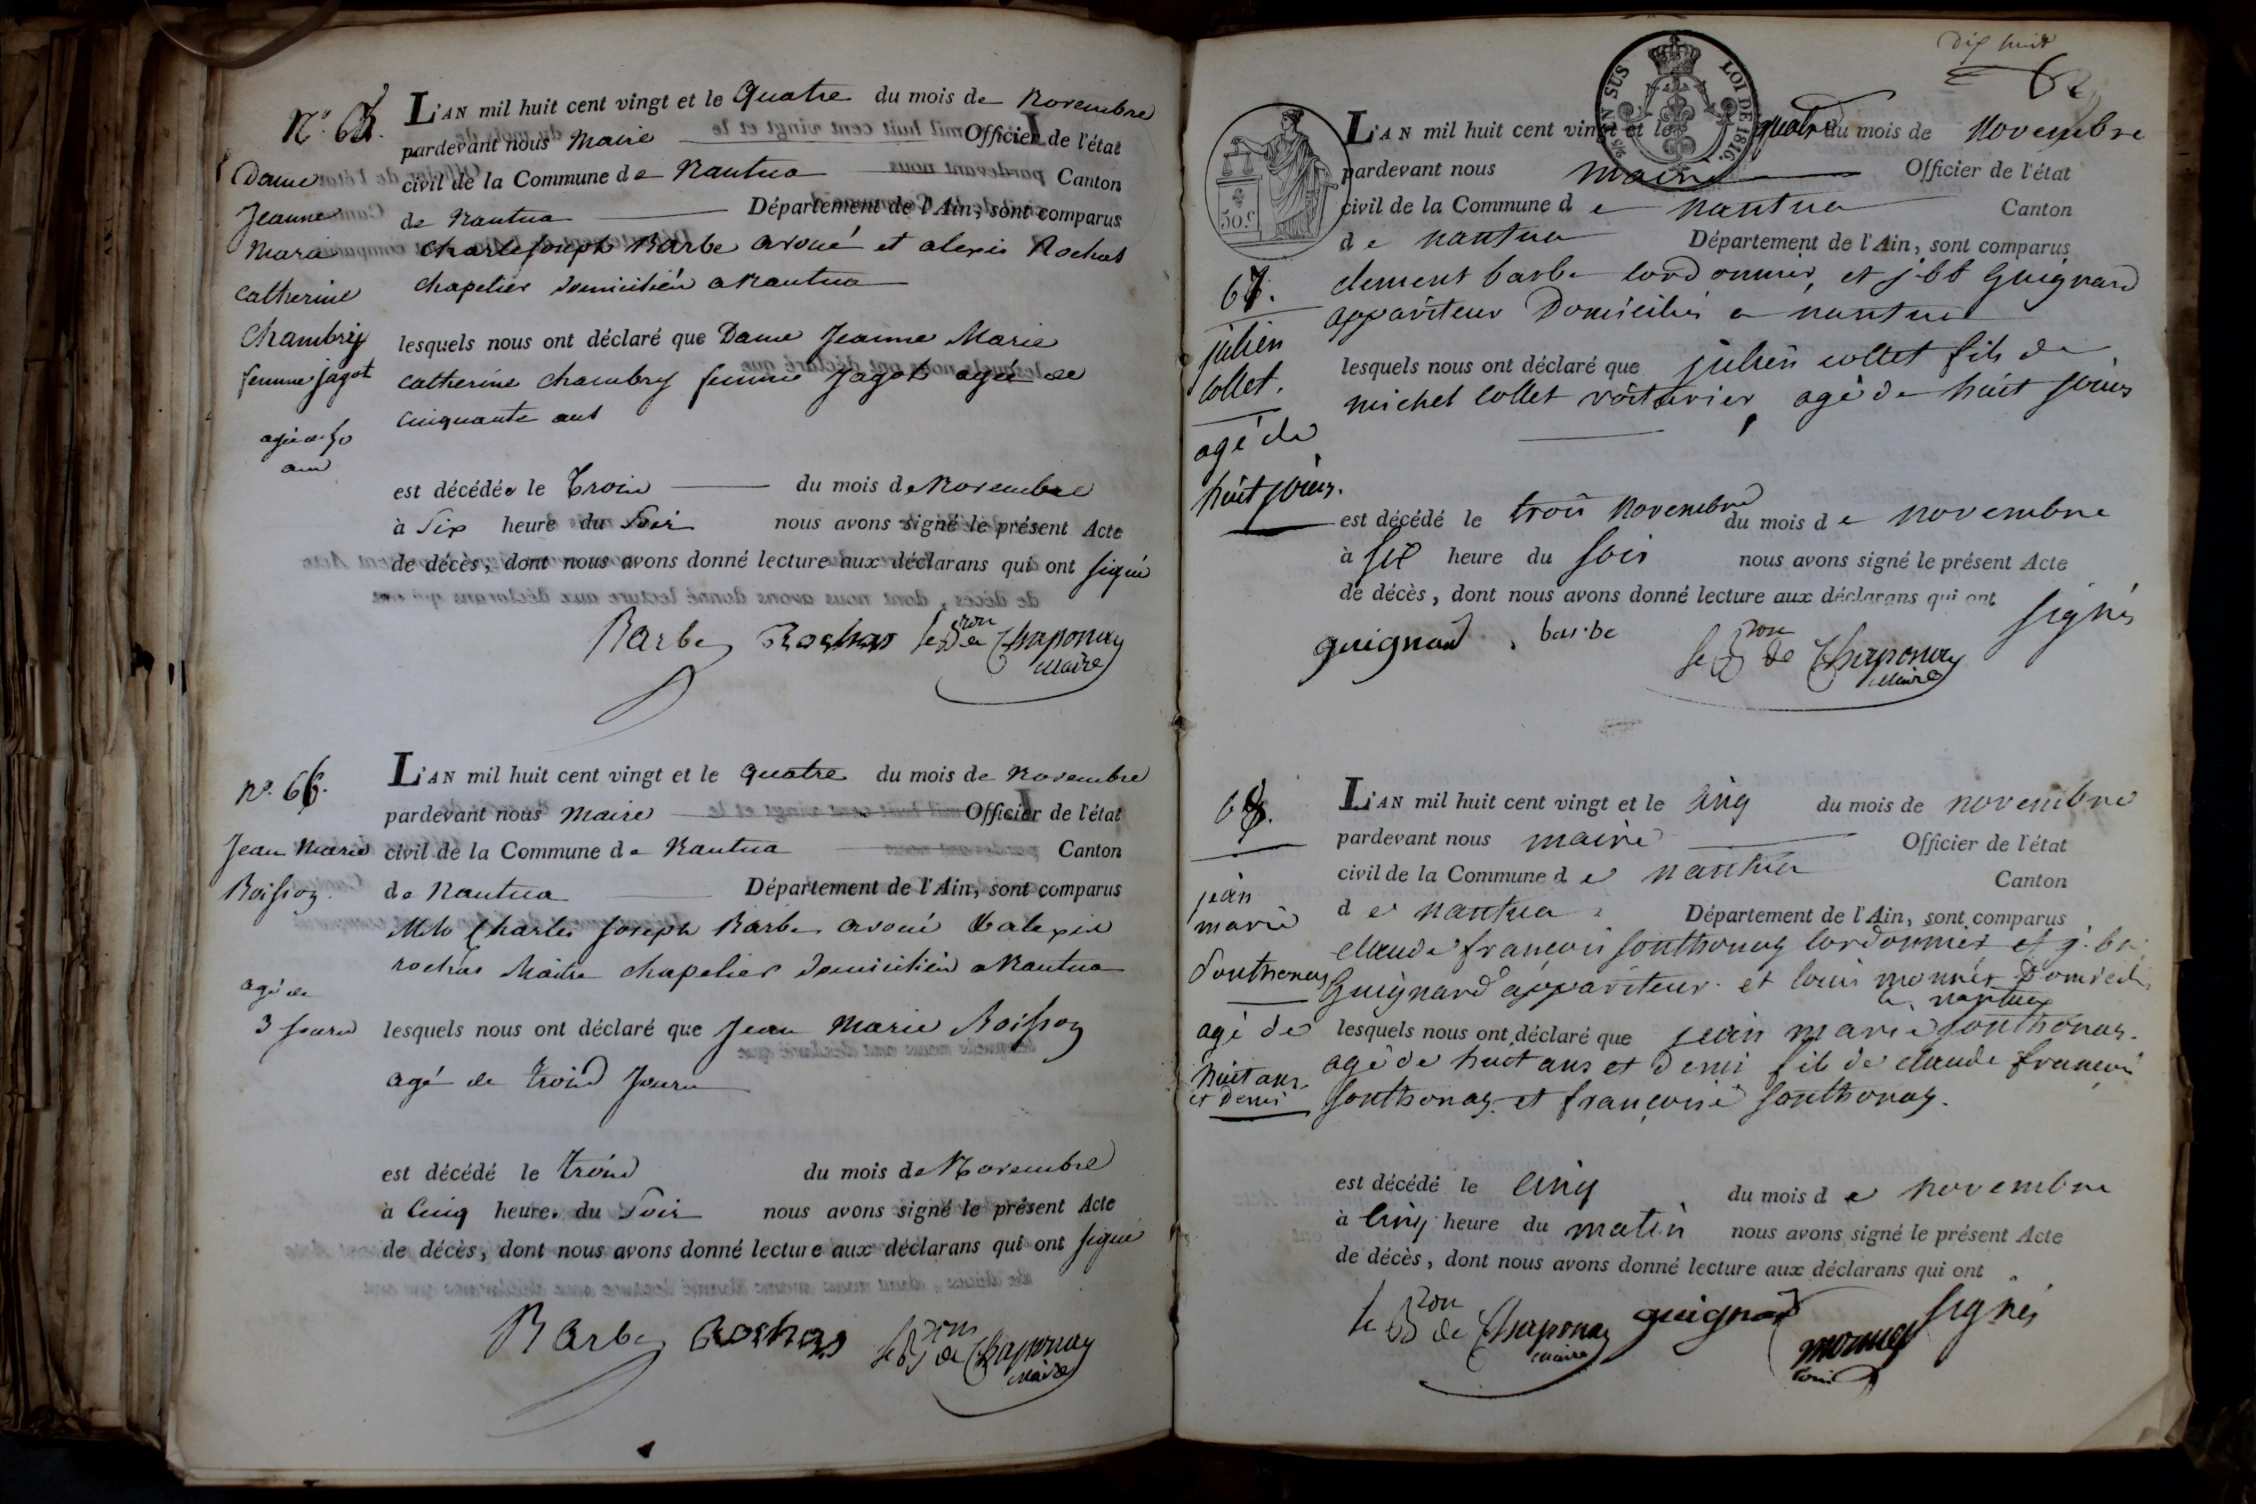 N.º 65.
Dame
Jeanne
Marie
Catherine
Chambry
femme Jagot
agée de 50
ans
L'AN mil huit cent vingt et le quatre du mois de Novembre
pardevant nous Maire Officier de l'état
civil de la Commune de Nantua Canton
de Nantua Département de l'Ain, sont comparus
Charles Joseph Barbe avoué et alexis Rochas
chapelier domiciliés a Nantua
lesquels nous ont déclaré que Dame Jeanne Marie
Catherine Chambry femme Jagot agée de
cinquante ans
est décédée le trois du mois de Novembre
à Six heure du Soir nous avons signé le présent Acte
de décès, dont nous avons donné lecture aux déclarans qui ont signé
Barbe Rochas le Bron de Chaponay
Maire
N.º 66.
Jean Marie
Boissoy
agé de
3 jours
L'AN mil huit cent vingt et le quatre du mois de Novembre
pardevant nous Maire Officier de l'état
civil de la Commune de Nantua Canton
de Nantua Département de l'Ain, sont comparus
Charles Joseph Barbe avoué & alexis
rochas Maitre chapelier domiciliés a Nantua
lesquels nous ont déclaré que Jean Marie Boissoy
agé de trois jours
est décédé le trois du mois de Novembre
à Cinq heure du Soir nous avons signé le présent Acte
de décès, dont nous avons donné lecture aux déclarans qui ont signé
Barbe Rochas le Bron de Chaponay
Maire
dix huit
EN SUS LOI DE 1816.
50 c
67.
julien
Collet.
agé de
huit jours.
L'AN mil huit cent vingt et le quatre du mois de Novembre
pardevant nous maire Officier de l'état
civil de la Commune de nantua Canton
de nantua Département de l'Ain, sont comparus
clement barbe cordonnier, et j. bt Guignard
appariteur Domiciliés a nantua
lesquels nous ont déclaré que julien collet fils de
michel collet voiturier, agé de huit jours
est décédé le trois novembre du mois de novembre
à six heure du soir nous avons signé le présent Acte
de décès, dont nous avons donné lecture aux déclarans qui ont signés
guignard barbe le Bron de Chaponay
Maire
68.
jean
marie
Sonthonay
agé de
huit ans
et demi
L'AN mil huit cent vingt et le cinq du mois de novembre
pardevant nous maire Officier de l'état
civil de la Commune de nantua Canton
de nantua Département de l'Ain, sont comparus
claude françois Sonthonay cordonnier et j. bt
Guignard appariteur. et louis monnet Domicil.
a nantua
lesquels nous ont déclaré que jean marie Sonthonay.
agé de huit ans et demi fils de claude françois
Sonthonay. et françoise Sonthonay.
est décédé le cinq du mois de novembre
à cinq heure du matin nous avons signé le présent Acte
de décès, dont nous avons donné lecture aux déclarans qui ont signés
le Bron de Chaponay guignard
Maire